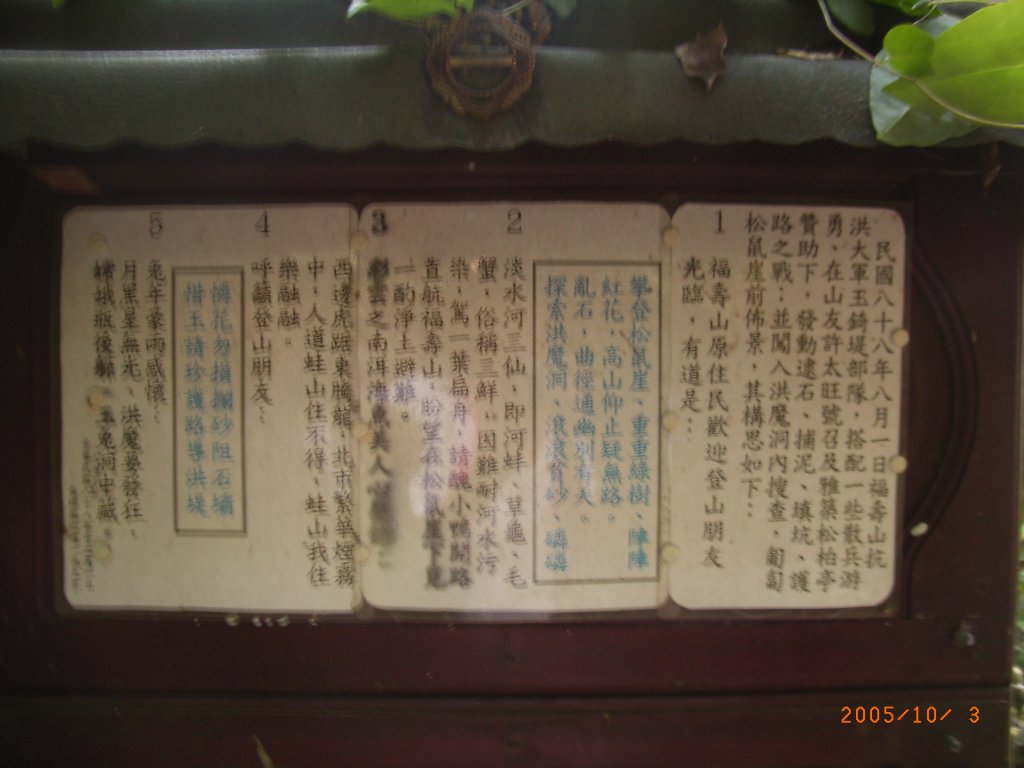 民國八十八年八月一日福壽山抗
洪大軍玉錡堤部隊，搭配一些散兵游
勇、在山友許太旺號召及雅築松柏亭
贊助下，發動逮石、捕泥、填坑、護
路之戰；並闖入洪魔洞內搜查，匍匐
松鼠崖前佈景，其構思如下：
1
福壽山原住民歡迎登山朋友
光臨，有道是：
攀登松鼠崖、重重綠樹、陣陣
紅花，高山仰止疑無路。
亂石，曲徑通幽別有天。
探索洪魔洞、滾滾貧砂、磷磷
2
淡水河三仙，即河蚌、草龜、毛
蟹，俗稱三鮮，因難耐河水污
染，駕一葉扁舟，請醜小鴨開路
直航福壽山，盼望在松鼠崖下覓
一酌淨土避難。
3
彩雲之南洱海魚美人心
西邊虎踞東騰龍，北市繁華煙霧
中，人道蛙山住不得，蛙山我住
樂融融。
4
呼籲登山朋友：
憐花勿損攔砂阻石壩
惜玉請珍護路導洪堤
5
兔年豪雨感懷：
月黑星無光、洪魔要發狂，
嫦娥瓶後躲、玉兔洞中藏。
2005/10/ 3